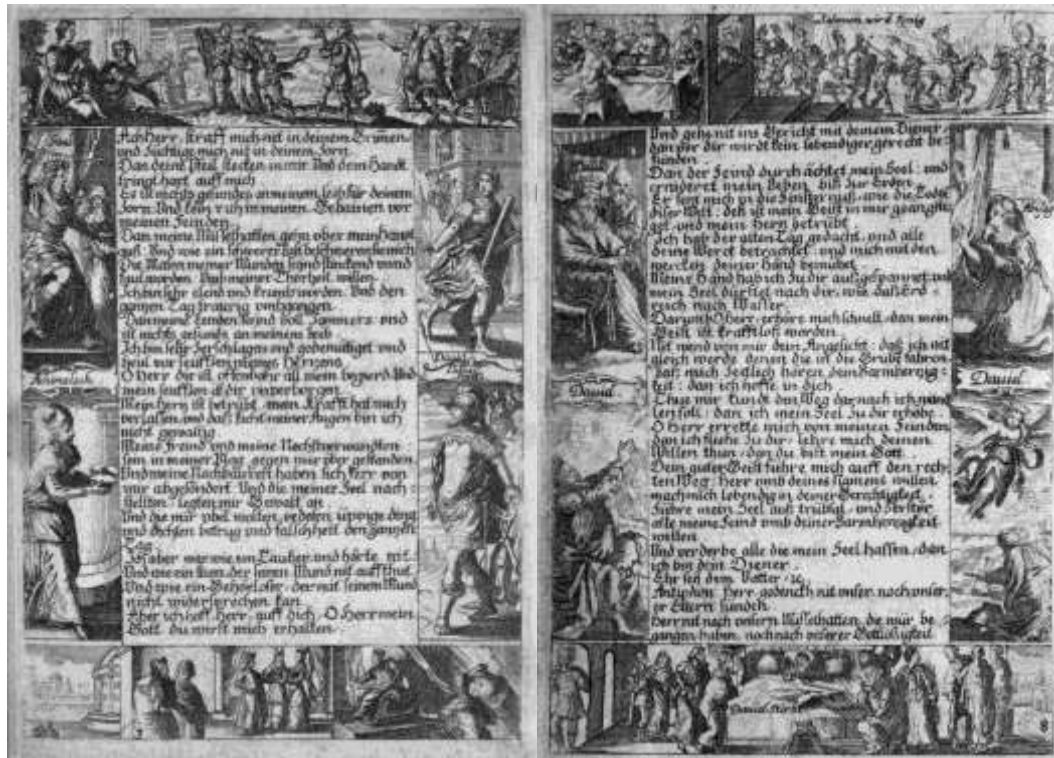 Ach Herr, straff mich nit in deinem Grimen,
und züchtige mich nit in deinem Zorn.
Dan deine Pfeil stecken in mir Vnd dein Handt
tringt hart auff mich
Es ist nichts gesundes an meinem leib für deinem
Zorn Vnd kein in meinen Gebainen vor
meinen
Dan meine Missethatten gehn vber mein Haupt
auß Vnd wie ein schwerer last beschweren sie mich
Die Masen meiner Wunden sand stinckend vnnd
faul worden Vmb meiner Thorheit willen.
Ich bin sehr elend und krumb worden. Vnd den
gantzen Tag traurig vmbgangen.
Dan meine Lenden seind voll Jammers vnd
ist nichts gesunds an meinem Leib
Ich bin sehr Zerschlagen vnd gedemütiget vnd
heul vor seufftzen meines Hertzens.
O Herr dir ist offenbahr all mein begierd Vnd
mein seufftzen ist dir vnverborgen
Mein Hertz ist betrübt, mein Krafft hat mich
verlassen, vnd daß liecht meiner Augen bin ich
nicht gewaltig
Meine Freind vnd meine Nechstverwandten
sein in meiner Plag gegen mir vber gestanden
Vnd meine Nachbaurs haben sich ferr von
mir abgesöndert Vnd die meiner Seel nach
stellten, legten mir Gewalt an
Vnd die mir vbel wollen, redeten üppige ding
vnd dichten betrug vnd falschheit den gantzen
Tag
Ich aber war wie ein Tauber, vnd hörte nit
Vnd wie ein stum, der seinen Mund nit auff thut
Vnd wie ein Gehörloser, der mit seinem Mund
nicht widersprechen kan
Aber ich hoff Herr auff dich, O Herr mein
Gott du wirst mich erhalten.
Saul
Achimelech
David
7
Salomon wird König
Vnd gehe nit ins Gericht mit deinem Diener,
dan vor dir wirdt kein lebendiger gerecht be
funden
Dan der Feind durch ächtet mein Seel: vnd
ernideret mein Leben biß zur Erden
Er sezt mich in die Finsternuß, wie die Todte
diser Welt: deß ist mein Geist in mir geängsti
get, vnd mein Hertz betrübt.
Ich hab der alten Tag gedacht, vnd alle
deine Werck betrachtet: vnd mich mit den
wercken deiner Hand bemühet
Meine Hand hab ich zu dir außgespannet, vnd
mein Seel dürstet nach dir, wie daß erd-
reich nach Wasser.
Darumb O Herr, erhöre mich schnell, dan mein
Geist ist krafftloß worden
Nit wend von mir dein Angesicht: daß ich nit
gleich werde denen die in die Grube fahren
Laß mich Zeitlich hören dein Barmhertzig-
keit: dan ich hoffe in dich
Thue mir kundt den Weg darnach ich wand
len soll: dan ich mein Seel zu dir erhebe.
O Herr errette mich von meinen Feinden,
dan ich fliehe zu dir, lehre mich deinen
Willen thun, dan du bist mein Gott.
Dein guter Geist führe mich auff den rech-
ten Weg: Herr vmb deines Namens willen,
mach mich lebendig in deiner Gerechtigkeit.
Führe mein Seel auß trübsal, vnd Zerstör
alle meine Feind vmb deiner Barmhertzigkeit
willen
Vnd verderbe alle die mein Seel hassen, dan
ich bin dein Diener.
Ehr sey dem Vatter, 2c.
Antiphon Herr gedenck nit vnser, noch vnser
er Eltern sünden
Herr nit nach vnsern Missethatten, die mir be
gangen haben, noch nach vnserer Gottlosigkeit
David
Abisag
David
David stirbt
8